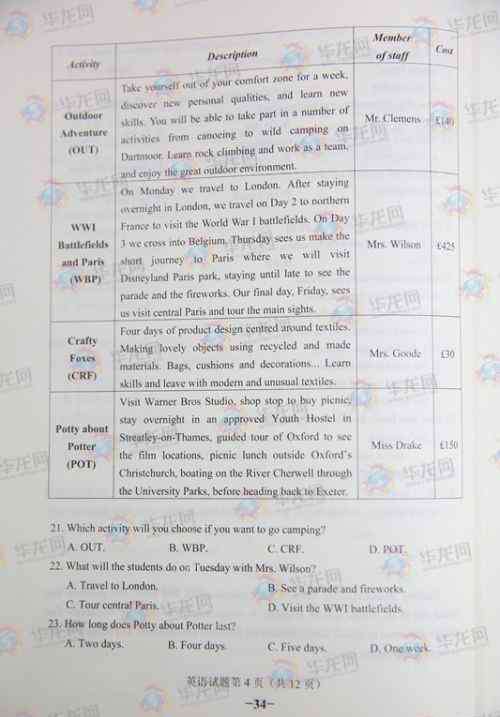 华龙网
Activity
Description
Member
of staff
Cost
Outdoor
Adventure
(OUT)
Take yourself out of your comfort zone for a week,
discover new personal qualities, and learn new
skills. You will be able to take part in a number of
activities from canoeing to wild camping on
Dartmoor. Learn rock climbing and work as a team,
and enjoy the great outdoor environment.
Mr. Clemens
£140
WWI
Battlefields
and Paris
(WBP)
On Monday we travel to London. After staying
overnight in London, we travel on Day 2 to northern
France to visit the World War I battlefields. On Day
3 we cross into Belgium. Thursday sees us make the
short journey to Paris where we will visit
Disneyland Paris park, staying until late to see the
parade and the fireworks. Our final day, Friday, sees
us visit central Paris and tour the main sights.
Mrs. Wilson
£425
Crafty
Foxes
(CRF)
Four days of product design centred around textiles.
Making lovely objects using recycled and made
materials. Bags, cushions and decorations... Learn
skills and leave with modern and unusual textiles.
Mrs. Goode
£30
Potty about
Potter
(POT)
Visit Warner Bros Studio, shop stop to buy picnic,
stay overnight in an approved Youth Hostel in
Streatley-on-Thames, guided tour of Oxford to see
the film locations, picnic lunch outside Oxford's
Christchurch, boating on the River Cherwell through
the University Parks, before heading back to Exeter.
Miss Drake
£150
21. Which activity will you choose if you want to go camping?
A. OUT. B. WBP. C. CRF. D. POT.
22. What will the students do on Tuesday with Mrs. Wilson?
A. Travel to London. B. See a parade and fireworks.
C. Tour central Paris. D. Visit the WWI battlefields.
23. How long does Potty about Potter last?
A. Two days. B. Four days. C. Five days. D. One week.
英语试题第 4 页（共 12 页）
-34-